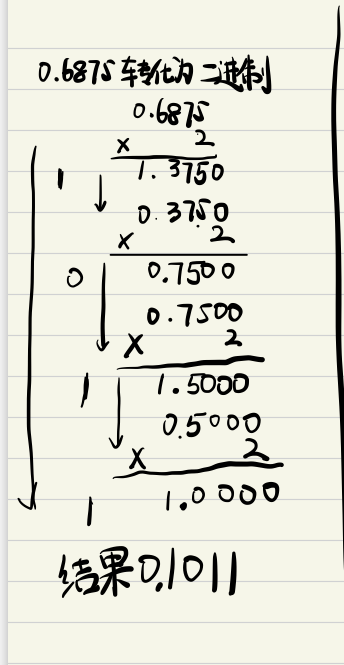 0.6875转化为二进制
0.6875
× 2
1 1.3750
0.3750
× 2
0 0.7500
0.7500
× 2
1 1.5000
0.5000
× 2
1 1.0000
结果0.1011